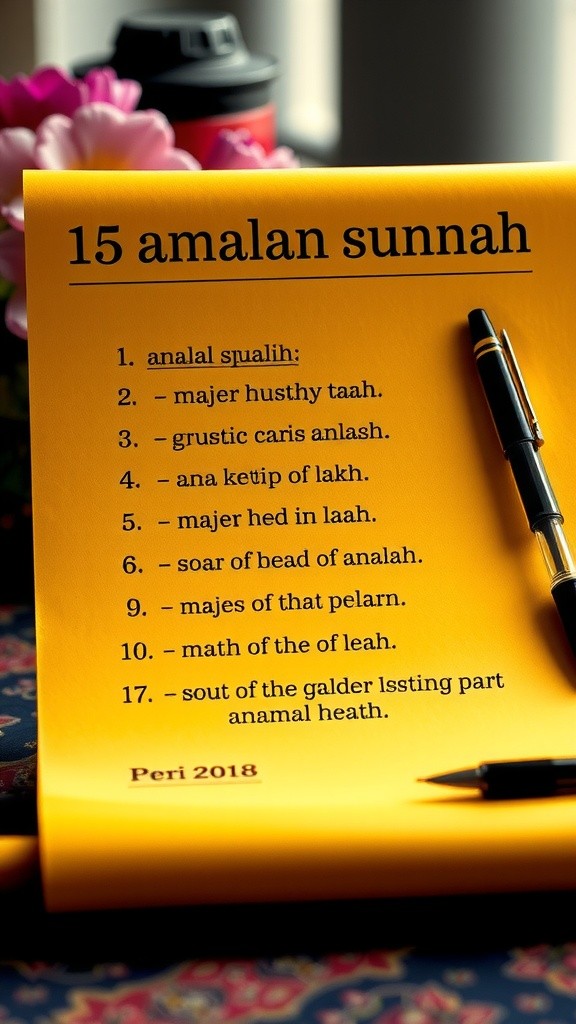 15 amalan sunnah
1. analal spualih:
2. – majer husthy taah.
3. – grustic caris anlash.
4. – ana kettip of lakh.
5. – majer hed in laah.
6. – soar of bead of analah.
9. – majes of that pelarn.
10. – math of the of leah.
17. – sout of the galder lssting part
anamal heath.
Peri 2018